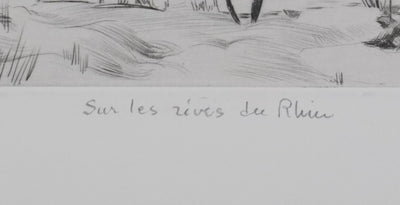 Sur les rives du Rhin